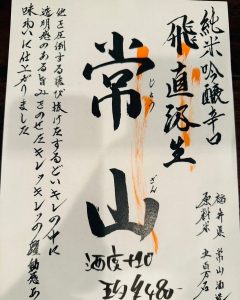 純米吟醸辛口
飛 直汲生
福井県 常山酒造
原料米 五百万石
常山
じょう ざん
他を圧倒する飛び抜けたするどいキレの中に
透明感のある旨みをのせたキレッキレッの躍動感あ
味わいに仕上がりました